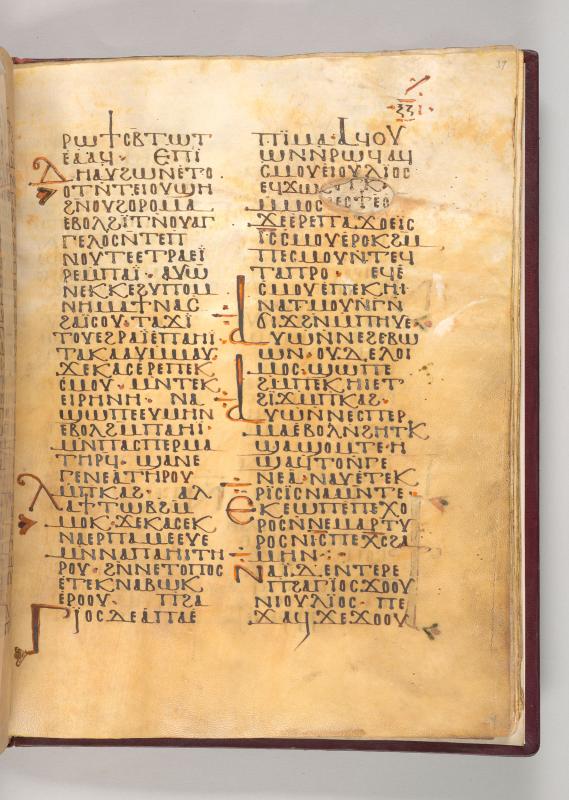 37
ⲝⲍ
ⲣⲱϯⲥⲃ̄ⲧⲱⲧ
ⲉⲁⲁϥ· ⲉⲡⲓ
ⲇⲏⲁⲩϩⲱⲛⲉⲧⲟ
ⲟⲧⲛ̄ⲧⲉⲓⲟⲩϣⲏ
ϩⲛⲟⲩϩⲟⲣⲟⲙⲁ
ⲉⲃⲟⲗϩⲓ̈ⲧⲛⲟⲩⲁⲅ
ⲅⲉⲗⲟⲥⲛⲧⲉⲡ
ⲛⲟⲩⲧⲉⲉⲧⲣⲁⲉⲓ̈
ⲣⲉⲙⲡⲁⲓ̈· ⲁⲩⲱ̄
ⲛⲉⲕⲕⲉϩⲩⲡⲟⲙ
ⲛⲏⲙⲁϯⲛⲁⲥ
ϩⲁⲓ̈ⲥⲟⲩ·ⲧⲁϫⲓ̈
ⲧⲟⲩⲉϩⲣⲁⲓ̈ⲉⲡⲁⲏⲓ̈
ⲧⲁⲕⲁⲁⲩⲙⲙⲁⲩ
ϫⲉⲕⲁⲥⲉⲣⲉⲡⲉⲕ
ⲥⲙⲟⲩ· ⲙⲛⲧⲉⲕ
ⲉⲓⲣⲏⲛⲏ· ⲛⲁ
ϣⲱⲡⲉⲉⲩⲙⲏⲛ
ⲉⲃⲟⲗϩⲙⲡⲁⲏⲓ̈·
ⲙⲛⲡⲁⲥⲡⲉⲣⲙⲁ
ⲧⲏⲣϥ· ϣⲁⲛⲉ
ⲅⲉⲛⲉⲁⲧⲏⲣⲟⲩ
ⲙⲡⲕⲁϩ· ⲁⲗ
ⲗⲁϯⲧⲱⲃϩⲙ
ⲙⲟⲕ·ϫⲉⲕⲁⲥⲉⲕ
ⲛⲁⲉⲣⲡⲁⲙⲉⲉⲩⲉ
ⲙⲛⲛⲁⲡⲁⲏⲓⲧⲏ
ⲣⲟⲩ·ϩⲛⲛⲉⲧⲟⲡⲟⲥ
ⲉⲧⲉⲕⲛⲁⲃⲱⲕ
ⲉⲣⲟⲟⲩ· ⲡϩⲁ
ⲅⲓ̈ⲟⲥⲇⲉⲁⲡⲁⲉ
ⲡⲓ̈ⲙⲁ·ⲁϥⲟⲩ
ⲱⲛⲛ̄ⲣⲱϥⲁϥ
ⲥⲙⲟⲩⲉⲓⲟⲩⲗⲓ̈ⲟⲥ
ⲉϥϫⲱ
ⲙⲙⲟⲥ
ϫⲉⲉⲣⲉⲡⲁϫⲟⲉⲓ̈ⲥ
ⲓ̄ⲥ̄ⲥⲙⲟⲩⲉⲣⲟⲕϩⲙ
ⲡⲉⲥⲙⲟⲩⲛ̄ⲧⲉϥ
ⲧⲁⲡⲣⲟ· ⲉϥⲉ
ⲥⲙⲟⲩⲉⲡⲉⲕⲏⲓ
ⲛⲁⲧⲙⲟⲩⲛ̄ⲅⲛ̄
ϭⲓϫϩⲛⲙⲡⲏⲩⲉ
ⲁⲩⲱⲛ̄ⲛⲉϩⲉⲃⲱ
ⲱⲛ·ⲟⲩⲇⲉⲗⲟⲓ
ⲙⲟⲥ·ϣⲱⲡⲉ
ϩⲙⲡⲉⲕⲏⲓⲉⲧ
ϩⲓ̈ϫⲙⲡⲕⲁϩ·
ⲁⲩⲱⲛ̄ⲛⲉⲥⲡⲉⲣ
ⲙⲁⲉⲃⲟⲗⲛϩⲏⲧⲕ
ϣⲁϣⲟⲙⲧⲉ·ⲏ
ϣⲁϥⲧⲟⲛ̄ⲅⲉ
ⲛⲉⲁ·ⲛⲁⲩⲉⲧⲉⲕ
ⲕⲣⲓ̈ⲥⲓⲥⲛⲁⲙⲛ̄ⲧⲉ·
ⲉⲕⲉϣⲱⲡⲉⲡⲉⲭⲟ
ⲣⲟⲥⲛ̄ⲛⲉⲙⲁⲣⲧⲩ
ⲣⲟⲥⲛⲓ̄ⲥ̄ⲡⲉⲭ̄ⲥ̄ϩⲁ
ⲙⲏⲛ·
ⲛⲁⲓ̈ⲇⲉⲛⲧⲉⲣⲉ
ⲡϩⲁⲅⲓ̈ⲟⲥϫⲟⲟⲩ
ⲛⲓⲟⲩⲗⲓ̈ⲟⲥ· ⲡⲉ
ϫⲁϥϫⲉϫⲟⲟⲩ